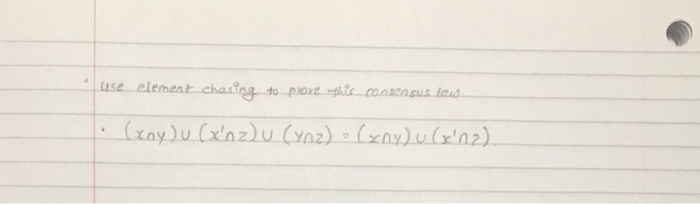 · use element chasing to prove this consensus law.
· (x∩y)∪(x'∩z)∪(y∩z) = (x∩y)∪(x'∩z)